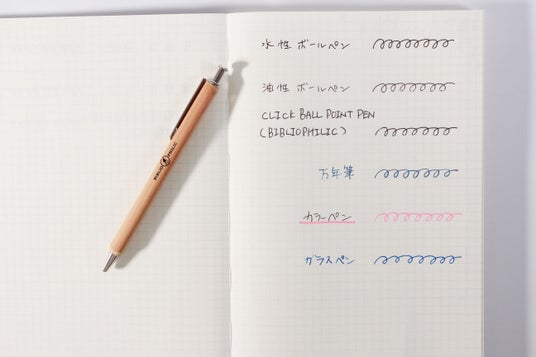 BIBLIOPHILIC
水性ボールペン
油性ボールペン
CLICK BALL POINT PEN
(BIBLIOPHILIC)
万年筆
カラーペン
ガラスペン